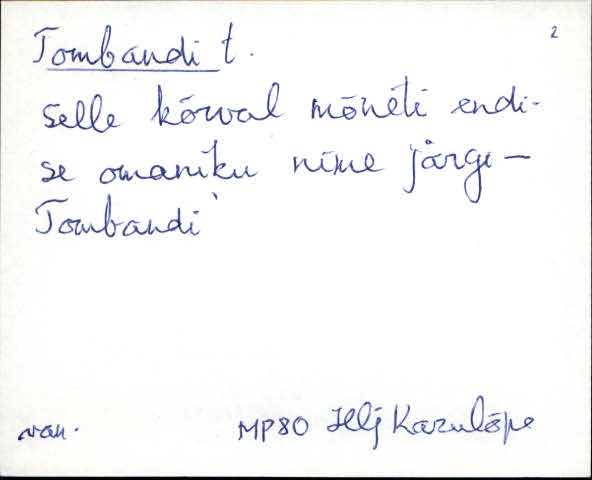 2
Tombandi t.
Selle kõrval mõnéti endi-
se omaniku nime järgi –
Tombandi
van.
MP80 Hlj Karulõpe